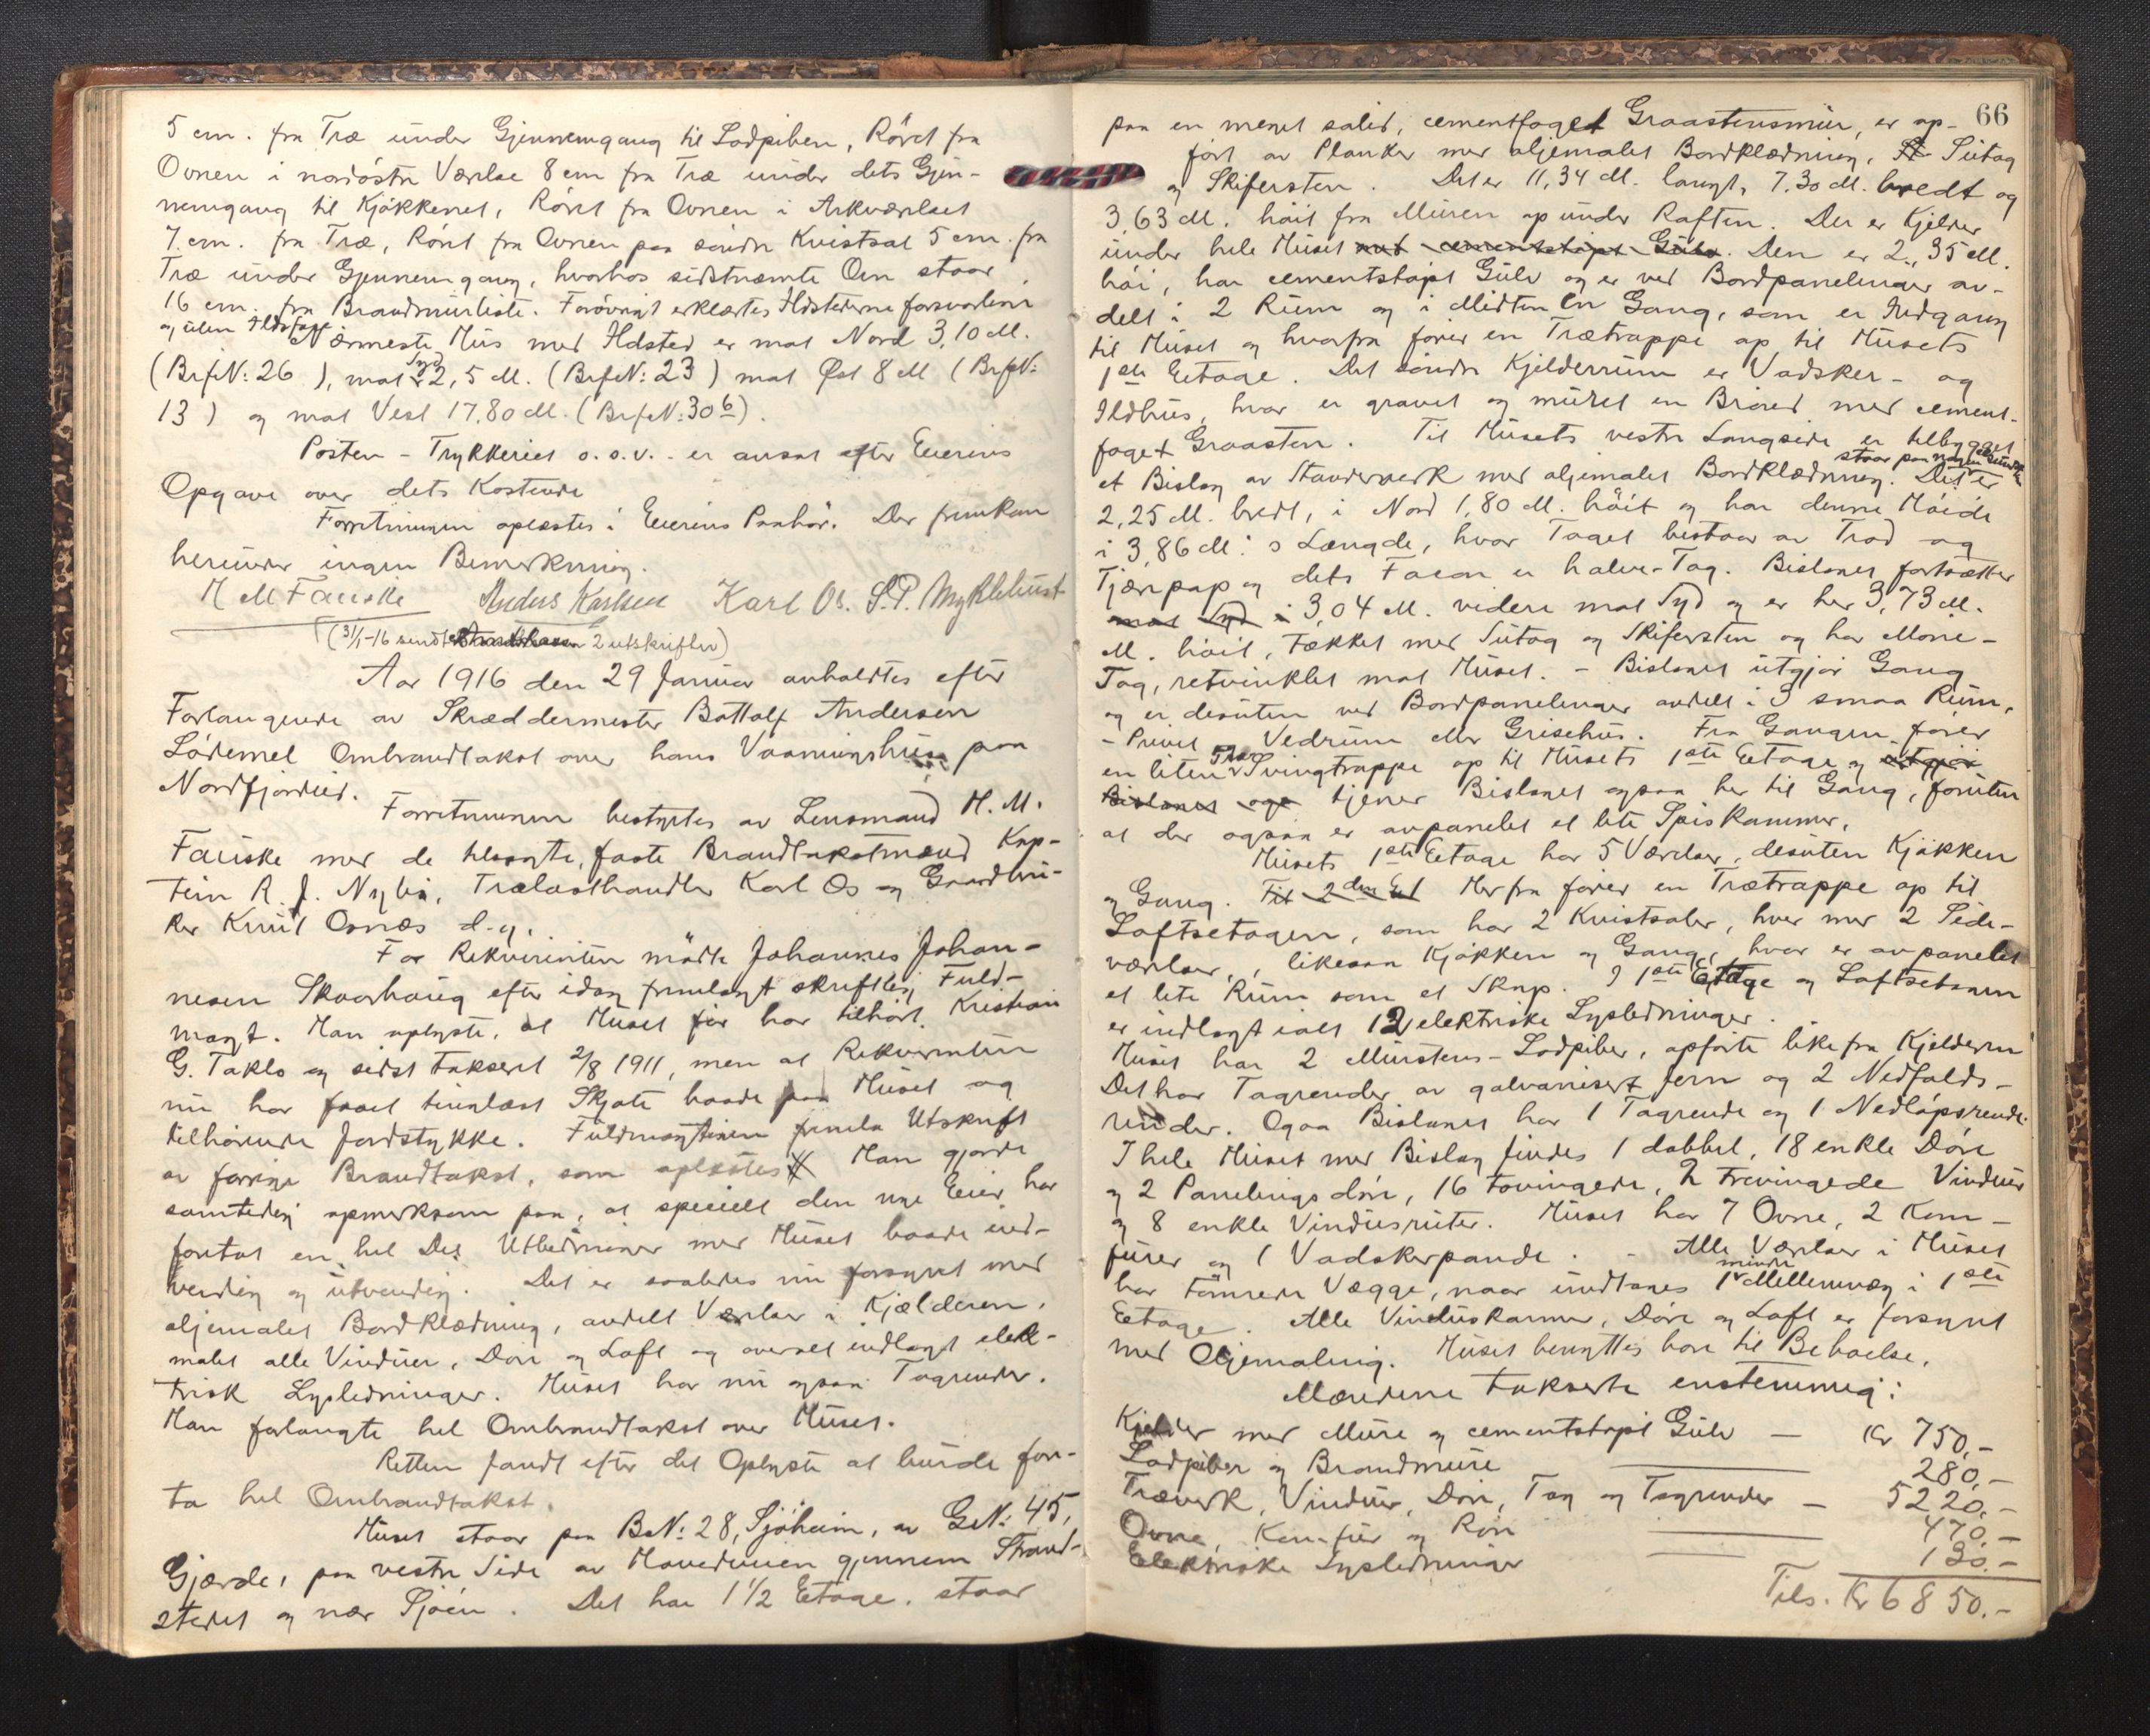 5 cm. fra Træ under Gjennemgang til Sodpiben, Røret fra
Ovnen i nordöstre Værelse 8 cm fra Træ under dets Gjen-
nemgang til Kjøkkenet, Røret fra Ovnen i Arkværelset
7 cm. fra Træ, Röret fra Ovnen paa söndre Kvistsal 5 cm. fra
Træ under Gjennemgang, hvorhos sidstnævnte Ovn staar
16 cm. fra Brandmurliste. Forövrigt erklærtes Ildstederne forsvarlige
og uten Ildsfare Nærmeste Hus med Ildsted er mot Nord 3,10 M.
(Brf№: 26), mot Syd 2,5 M. (Brf№: 23) mot Øst 8 M (Brf№:
13) og mot Vest 17,80 M. (Brf№: 30 b).
Posten - Trykkeriet o.s.v. - er ansat efter Eierens
Opgave over dets Kostende
Forretningen oplæstes i Eierens Paahör. Der fremkom
herunder ingen Bemerkning.
H M Fauske Anders Karlsen Karl Os. S.P. Myklebust
(31/1-16 sendt Brandkassen 2 utskrifter)
Aar 1916 den 29 Januar avholdtes efter
Forlangende av Skræddermester Bottolf Andersen
Lödemel Ombrandtakst over hans Vaaningshus paa
Nordfjordeid.
Forretningen bestyrtes av Lensmand H. M.
Fauske med de tilsagte, faste Brandtakstmænd Kap-
tein R. J. Nybö, Trælasthandler Karl Os og Gaardbru-
ker Knut Osnæs d.y.
For Rekvirenten mödte Johannes Johan-
nesen Skaarhaug efter idag fremlagt skriftlig Fuld-
magt. Han oplyste, at Huset för har tilhört Kristian
G. Taklo og sidst takseret 2/8 1911, men at Rekvirenten
nu har faaet tinglæst Skjöte baade paa Huset og
tilhörende Jordstykke. Fuldmægtigen fremla Utskrift
av forrige Brandtakst, som oplæstes. Han gjorde
samtidig opmerksom paa, at specielt den nye Eier har
foretat en hel Del Utbedringer med Huset baade ind-
vendig og utvendig. Det er saaledes nu forsynet med
oljemalet Bordklædning, avdelt Værelser i Kjælderen,
malet alle Vinduer, Döre og Loft og overalt indlagt elek-
trisk Lysledninger. Huset har nu ogsaa Tagrender.
Han forlangte hel Ombrandtakst over Huset.
Retten fandt efter det Oplyste at burde fore-
ta hel Ombrandtakst.
Huset staar paa B№: 28, Sjöheim, av G№: 45,
Gjærde, paa vestre Side av Hovedveien gjennem Strand-
stedet og nær Sjöen. Det har 1 1/2 Etage, staar
66
paa en meget solid, cementfoget Graastensmur, er op-
fört av Planker med oljemalet Bordklædning, Sutag
og Skifersten. Det er 11,34 M. langt, 7,30 M. bredt og
3,63 M. höit fra Muren op under Raften. Der er Kjelder
under hele Huset med cementstöpt Gulv. Den er 2,35 M.
höi, har cementstöpt Gulv og er ved Bordpanelinger av-
delt i 2 Rum og i Midten en Gang, som er Indgang
til Huset og hvorfra förer en Trætrappe op til Husets
1ste Etage. Det söndre Kjelderrum er Vadsker- og
Ildhus, hvor er gravet og muret en Brönd med cement-
foget Graasten. Til Husets vestre Langside er tilbygget
et Bislag av Stenderverk med oljemalet Bordklædning. Det er
2,25 M. bredt, i Nord 1,80 M. höit og har denne Höide
i 3,86 M.'s Længde, hvor Taget bestaar av Trod og
Tjærepap og dets Facon er halve-Tag. Bislaget fortsætter
mot Syd i 3,04 M. videre mot Syd og er her 3,73 M.
M. höit, tækket med Sutag og Skifersten og har Möne-
Tag, retvinklet mot Huset. - Bislaget utgjör Gang
og er desuten ved Bordpanelinger avdelt i 3 smaa Rum,
- Privet, Vedrum eller Grisehus. Fra Gangen förer
en liten Svingtrappe op til Husets 1ste Etage og utgjör
Bislaget ogs tjener Bislaget ogsaa her til Gang, foruten
at der ogsaa er avpanelet et lite Spiskammer.
Husets 1ste Etage har 5 Værelser, desuten Kjökken
og Gang. Til 2den Et Herfra förer en Trætrappe op til
Loftsetagen, som har 2 Kvistsaler, hver med 2 Side-
værelser, likesaa Kjökken og Gang, hvor er avpanelet
et lite Rum som et Skap. I 1ste Etage og Loftsetagen
er indlagt ialt 12 elektriske Lysledninger.
Huset har 2 Murstens-Sodpiber, opförte like fra Kjelderen
Det har Tagrender av galvanisert Jern og 2 Nedfalds-
render. Ogsaa Bislaget har 1 Tagrende og 1 Nedlöpsrende.
I hele Huset med Bislag findes 1 dobbel, 18 enkle Döre
og 2 Panelingsdöre, 16 tovingede, 2 trevingede Vinduer
og 8 enkle Vindusruter. Huset har 7 Ovne, 2 Kom-
furer og 1 Vadskerpande. - Alle Værelser i Huset
har tömrede Vægge, naar undtages 1 mindre Mellemvæg i 1ste
Etage. Alle Vinduskarmer, Döre og Loft er forsynet
med Oljemaling. Huset benyttes bare til Beboelse.
Mændene takserte enstemmig:
Kjelder med Mure og cementstöpt Gulv — Kr 750,-
Sodpiber og Brandmure — 280,-
Træverk, Vinduer, Döre, Tag og Tagrender — 5220,-
Ovne, Komfur og Rör — 470,-
Elektriske Lysledninger — 130.-
Tils. Kr 6850.-